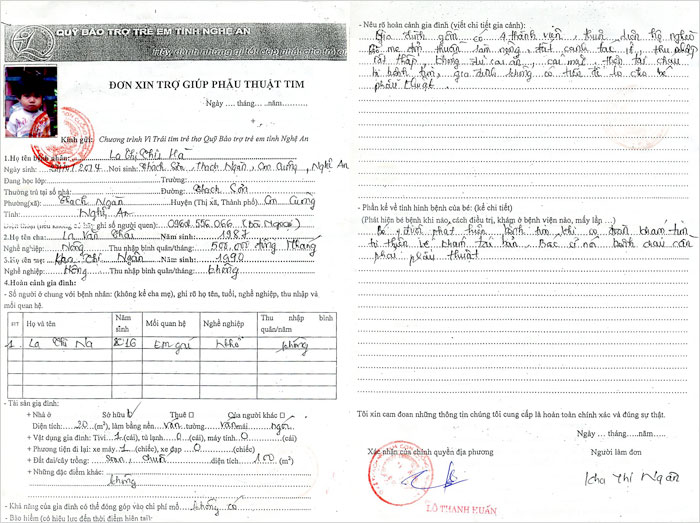 QUỸ BẢO TRỢ TRẺ EM TỈNH NGHỆ AN
ĐƠN XIN TRỢ GIÚP PHẪU THUẬT TIM
Ngày .... tháng....năm........
Kính gửi: Chương trình Vì Trái tim trẻ thơ Quỹ Bảo trợ trẻ em tỉnh Nghệ An
1.Họ tên bệnh nhân: La Thị Thu Hà
Ngày sinh: 2014 Nơi sinh: Thạch Sơn, Thạch Ngàn, Con Cuông, Nghệ An
Đang học lớp: Trường:
Thường trú tại số nhà: Đường: Thạch Sơn
Phường(xã): Thạch Ngàn Huyện (Thị xã, Thành phố) Con Cuông
Tỉnh: Nghệ An
(Bà Ngoại)
2.Họ tên cha: La Văn Thái Năm sinh: 1987
Nghề nghiệp: Nông Thu nhập bình quân/tháng: 500,000 đồng/tháng
3.Họ tên mẹ: Kha Thị Ngân Năm sinh: 1990
Nghề nghiệp: Nông Thu nhập bình quân/tháng: không
4.Hoàn cảnh gia đình:
- Số người ở chung với bệnh nhân: (không kể cha mẹ), ghi rõ họ tên, tuổi, nghề nghiệp, thu nhập và
mối quan hệ.
STT Họ và tên Năm sinh Mối quan hệ Nghề nghiệp Thu nhập bình quân/năm
1. La Thị Na 2016 Em gái Nhỏ không
- Tài sản gia đình:
+ Nhà ở Sở hữu Thuê □ Của người khác □
Diện tích: 30 (m²), làm bằng nền ván tường ván mái ngói
+ Vật dụng gia đình: Tivi 1 (cái), tủ lạnh 0 (cái), máy tính 0 (cái)
+ Phương tiện đi lại: xe máy 1 (chiếc), xe đạp 0 (chiếc)
+ Đất đai/cây trồng: diện tích 100 (m²)
+ Những đặc điểm khác:
không
- Khả năng của gia đình có thể đóng góp vào chi phí mổ không có
- Bảo hiểm (có hiệu lực đến thời điểm hiện tại):
- Nêu rõ hoàn cảnh gia đình (viết chi tiết gia cảnh):
Gia đình gồm có 4 thành viên, thuộc diện hộ nghèo
Bố mẹ đều thuần làm nông, đất canh tác ít, thu nhập
rất thấp, không đủ cái ăn, cái mặc
bị bệnh tim, gia đình không có tiền để lo cho bé
phẫu thuật.
- Phần kể về tình hình bệnh của bé: (kể chi tiết)
(Phát hiện bé bệnh khi nào, cách điều trị, khám ở bệnh viện nào, mấy lần ...)
Bé phát hiện bệnh tim khi có đoàn khám tim
từ thiện về khám tại bản. Bác sĩ nói bệnh cháu cần
phải phẫu thuật
Tôi xin cam đoan những thông tin chúng tôi cung cấp là hoàn toàn chính xác và đúng sự thật.
Ngày .... tháng.....năm........
Xác nhận của chính quyền địa phương Người làm đơn
LÔ THANH HUẤN
Kha Thị Ngân